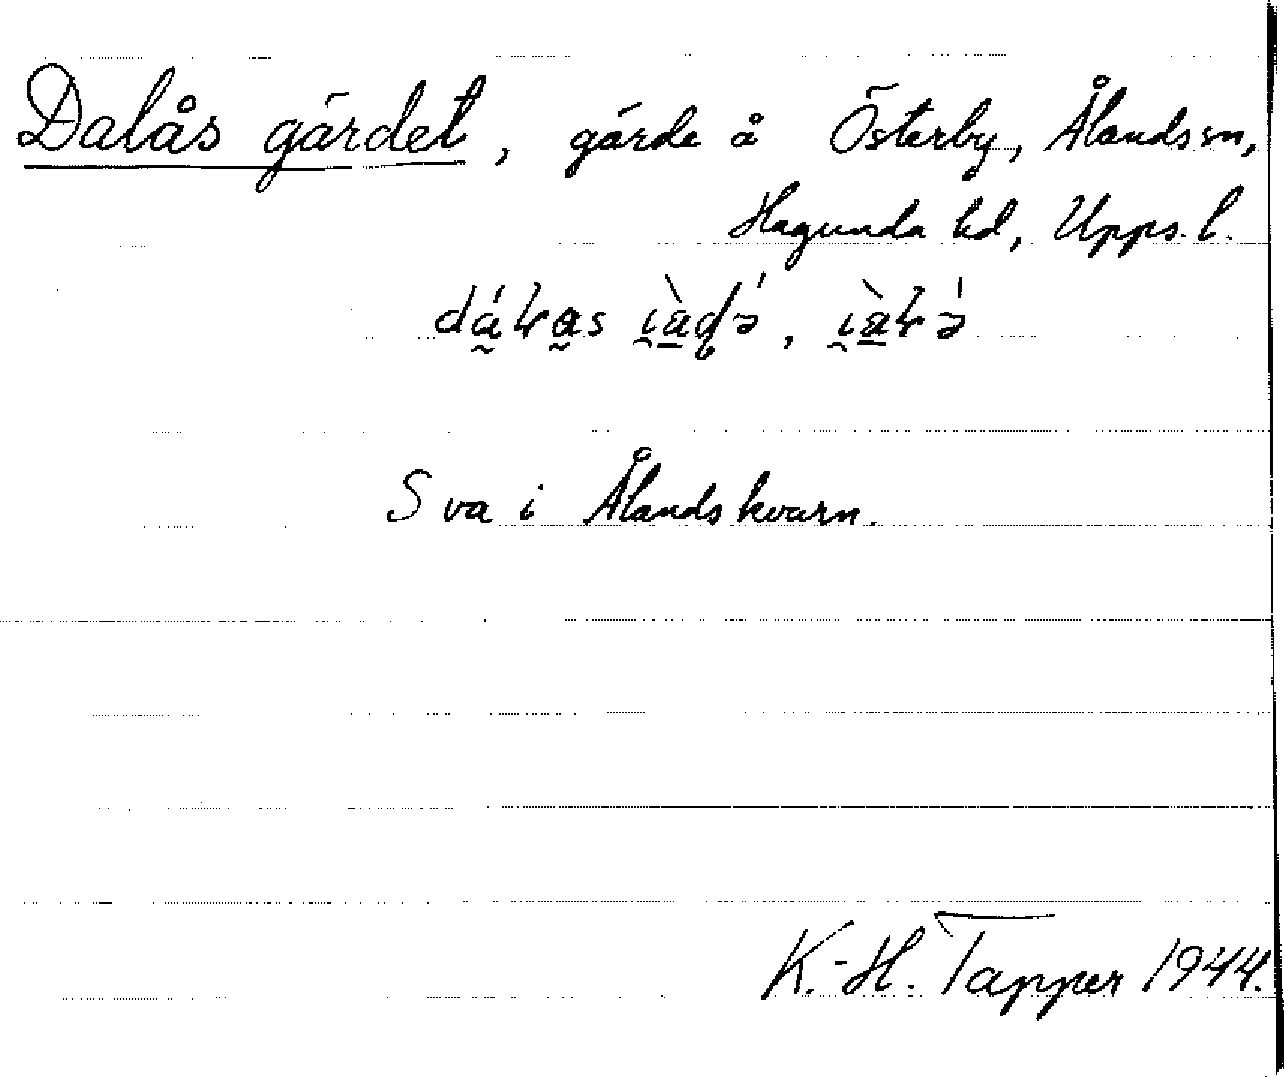 Dalås gärdet, gärde å Österby, Ålands sn,
Hagunda hd, Upps. l.
Sva i Ålandskvarn.
K.-H. Tapper 1944.